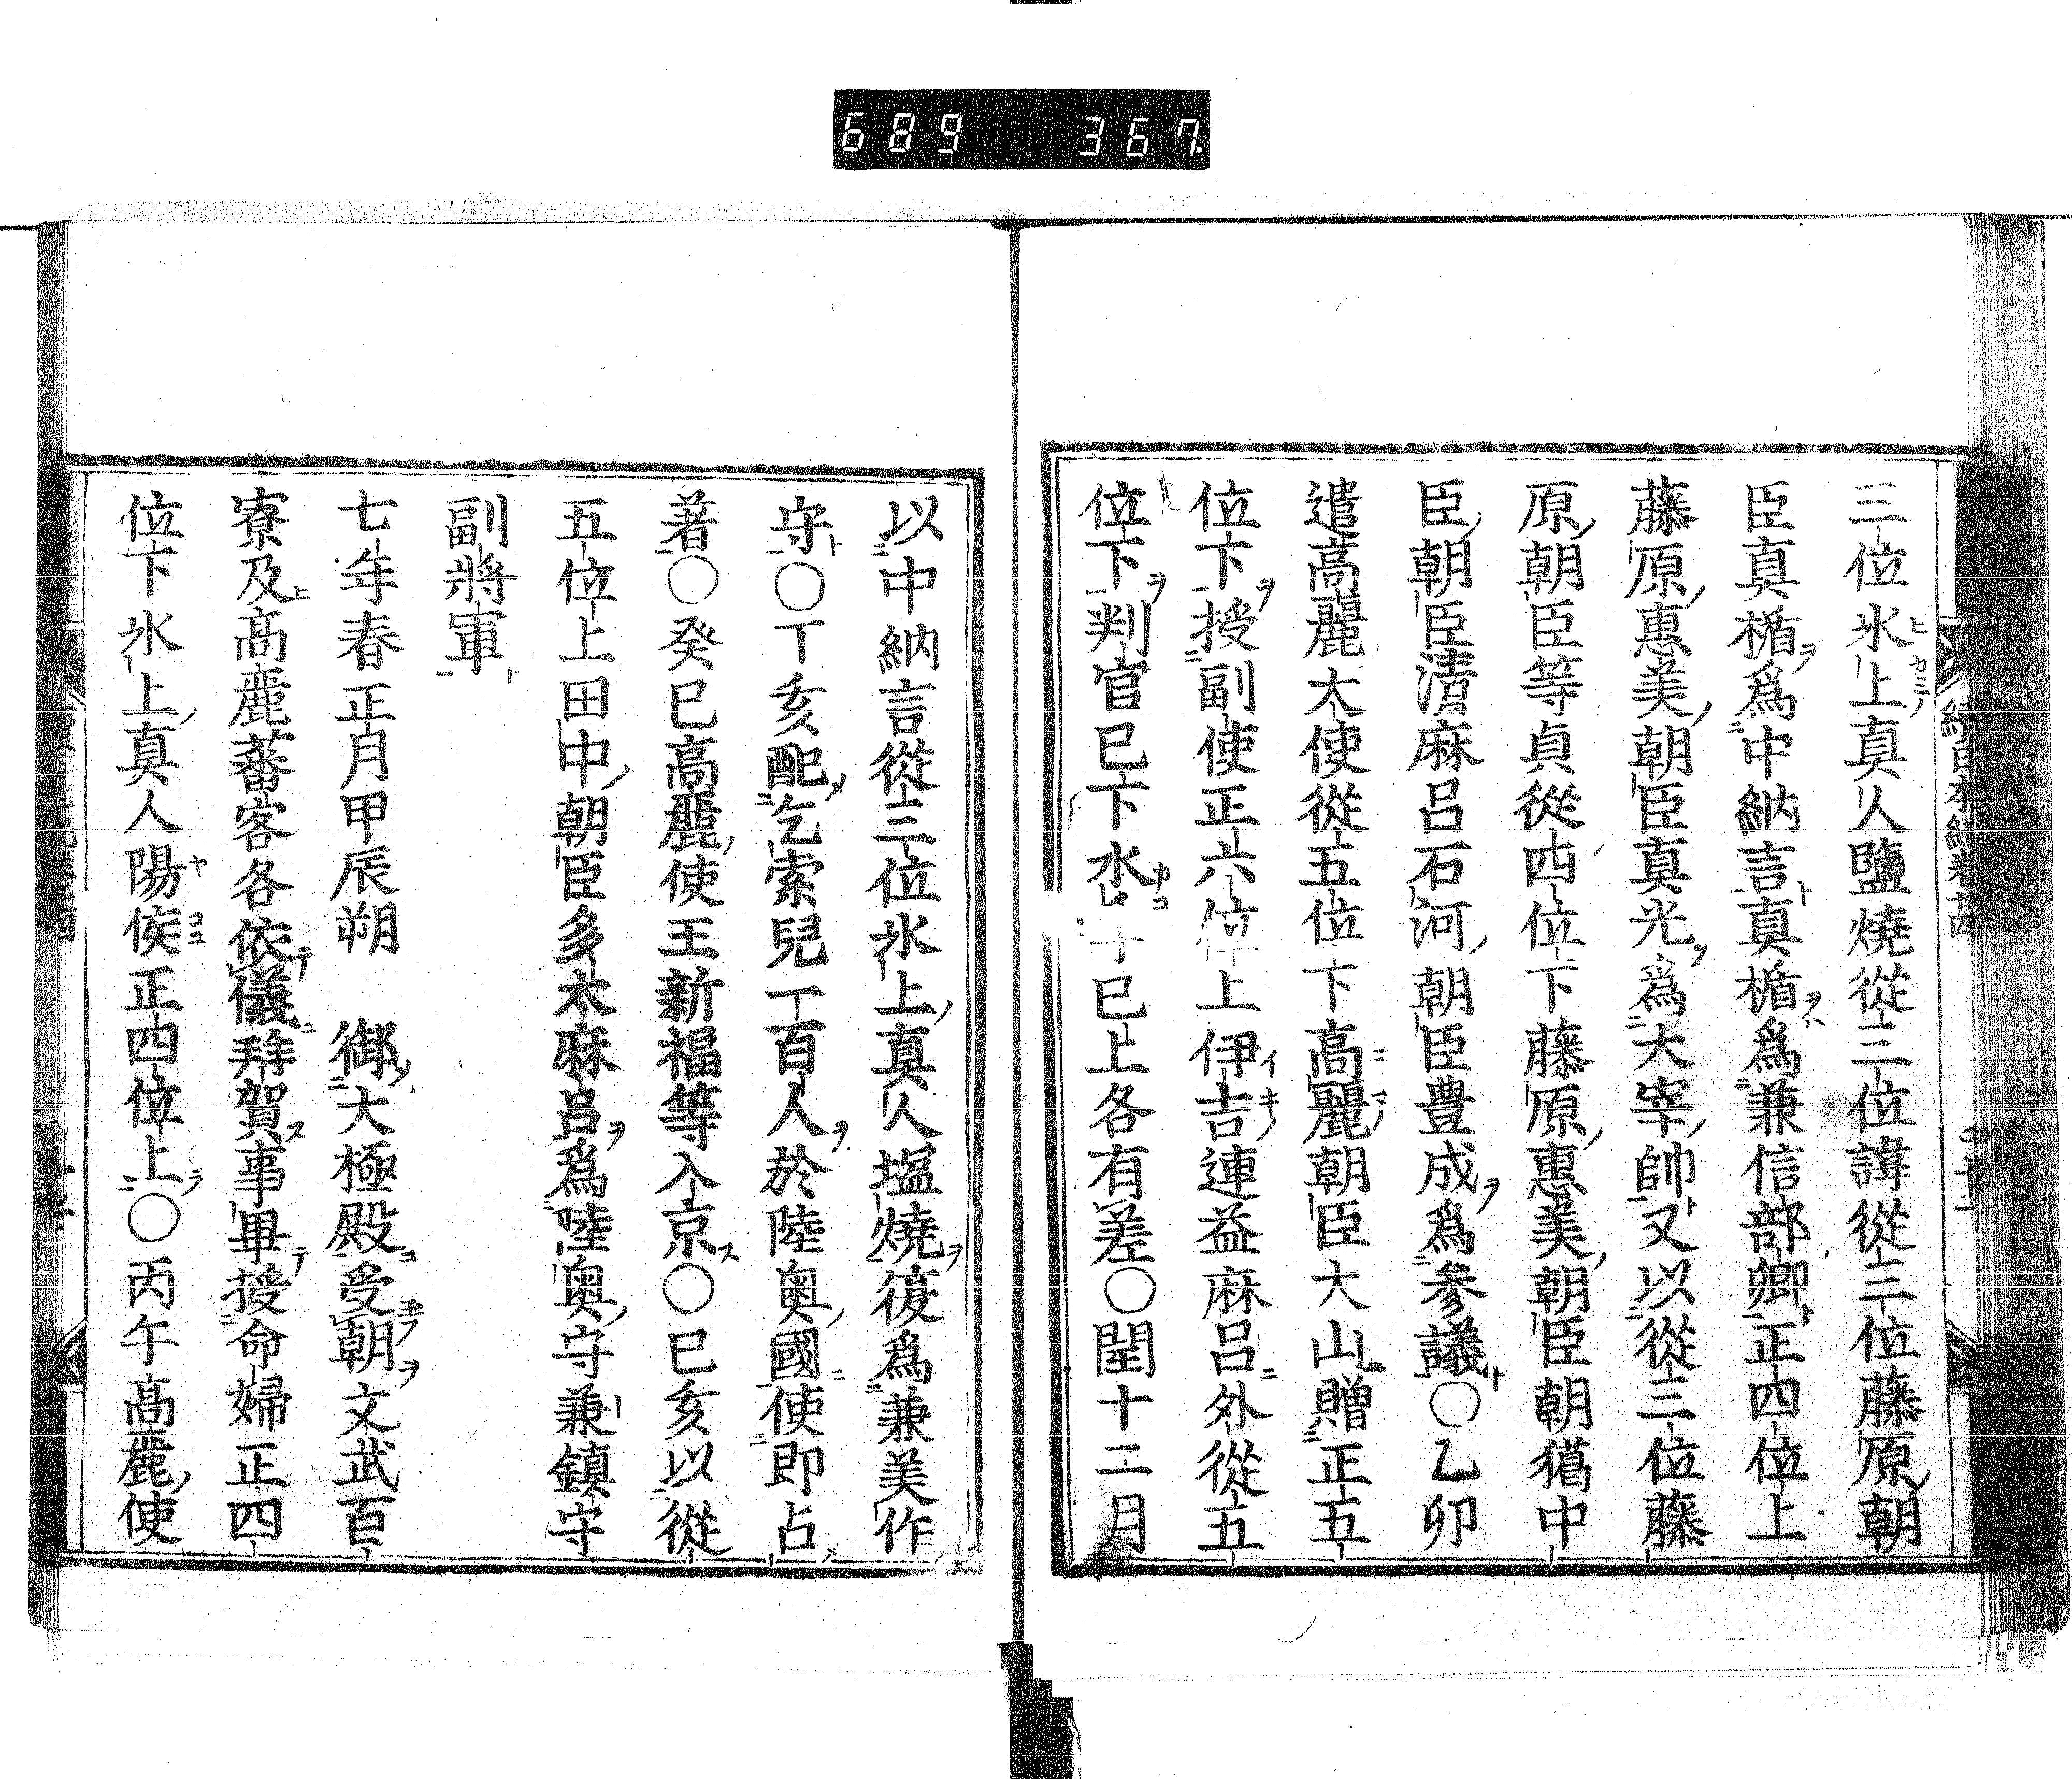 689 367
三位氷上真人鹽燒從三位諱從三位藤原朝
臣真楯爲中納言真楯爲兼信部卿正四位上
藤原惠美朝臣真光爲大宰帥又以從三位藤
原朝臣等貞從四位下藤原惠美朝臣朝獦中
臣朝臣清麻呂石河朝臣豊成爲參議〇乙卯
遣高麗大使從五位下高麗朝臣大山贈正五
位下授副使正六位上伊吉連益麻呂外從五
位下判官已下水
已上各有差〇閏十二月
以中納言從三位氷上真人塩燒復爲兼美作
守〇丁亥配乞索兒一百人於陸奧國使即占
著〇癸巳高麗使王新福等入京〇已亥以從
五位上田中朝臣多太麻呂爲陸奧守兼鎮守
副將軍
七年春正月甲辰朔 御大極殿受朝文武百
寮及高麗蕃客各依儀拜賀事畢授命婦正四
位下氷上真人陽侯正四位上〇丙午高麗使